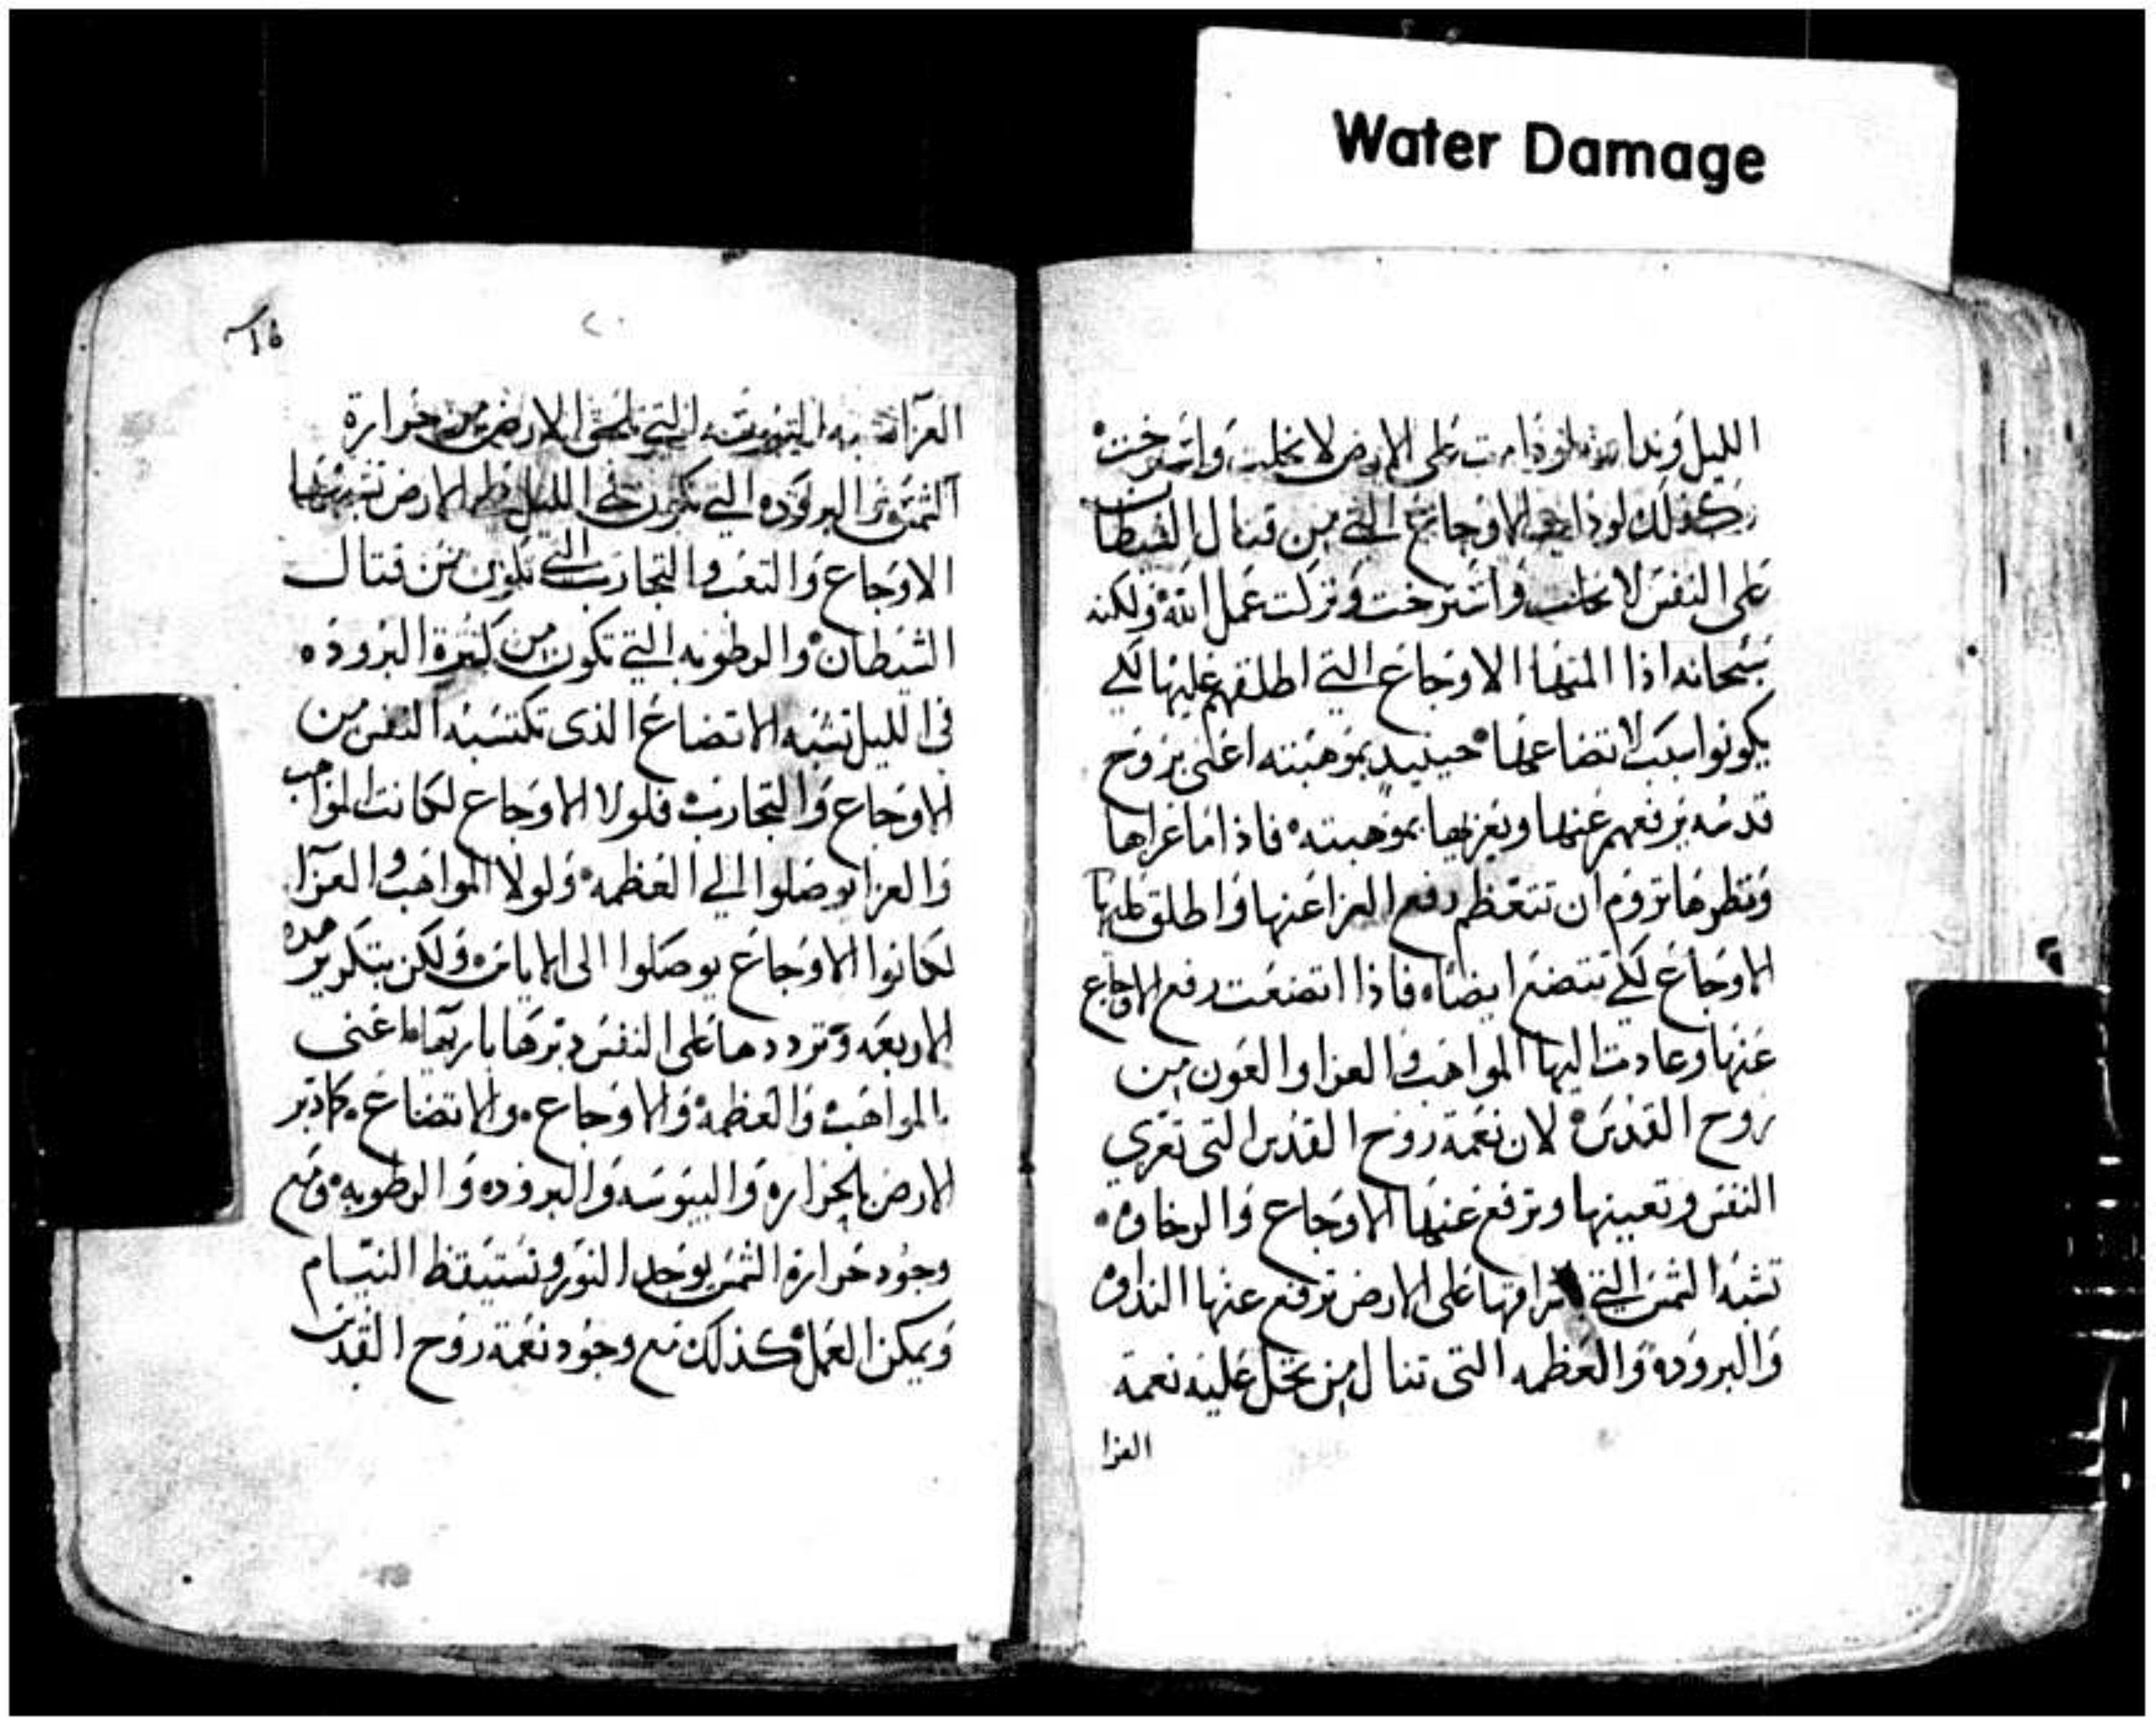 Water Damage
الليل وندا لودامت على الارض لانحلت واسترخت
وكذلك لو دامت الاوجاع التي من قتال الشيطان
على النفس لانحلت واسترخت وتركت عمل الله ولكنه
سبحانه اذا المتها الاوجاع التي اطلقهم عليها لكي
يكونوا سبب لاتضاعها حينيد بموهبته اعني بروح
قدسه يرفعهم عنها ويعزيها بموهبته فاذا ما عزاها
ونظرها تروم ان تتعظم رفع العزا عنها واطلق عليها
الاوجاع لكي تتضع ايضا فاذا اتضعت رفع الاوجاع
عنها وعادت اليها المواهب والعزا والعون من
روح القدس لان نعمة روح القدس التي تعزي
النفس وتعينها وترفع عنها الاوجاع والرخاوه
تشبه الشمس التي على الارض ترفع عنها النداوه
والبروده والعظمه التي تنال من تحل عليه نعمة
العزا
16
٢٠
العزا تشبه اليبوسه التي تلحق الارض من حرارة
الشمس والبروده التي تكون في الليل على الارض تشبه
الاوجاع والتعب والتجارب التي تكون من قتال
الشيطان والرطوبه التي تكون من كثرة البروده
في الليل تشبه الاتضاع الذي تكتسبه النفس من
الاوجاع والتجارب فلولا الاوجاع لكانت المواهب
والعزا يوصلوا الي العظمه ولولا المواهب والعزا
لكانوا الاوجاع يوصلوا الى الاياس ولكن بتكرير هده
الاربعه وترددها على النفس دبرها باريها اعني
بالمواهب والعظمه والاوجاع والاتضاع كما دبر
الارض بالحراره واليبوسه والبروده والرطوبه ومع
وجود حرارة الشمس يوجد النور وتستيقظ النيام
ويمكن العمل كذلك مع وجود نعمة روح القدس